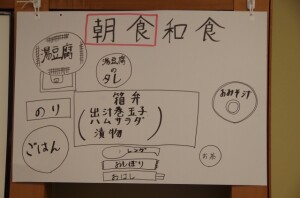 朝食和食
湯豆腐
湯豆腐
の
タレ
のり
箱弁
出汁巻玉子
ハムサラダ
漬物
おみそ汁
ごはん
レンゲ
おしぼり
おはし
お茶